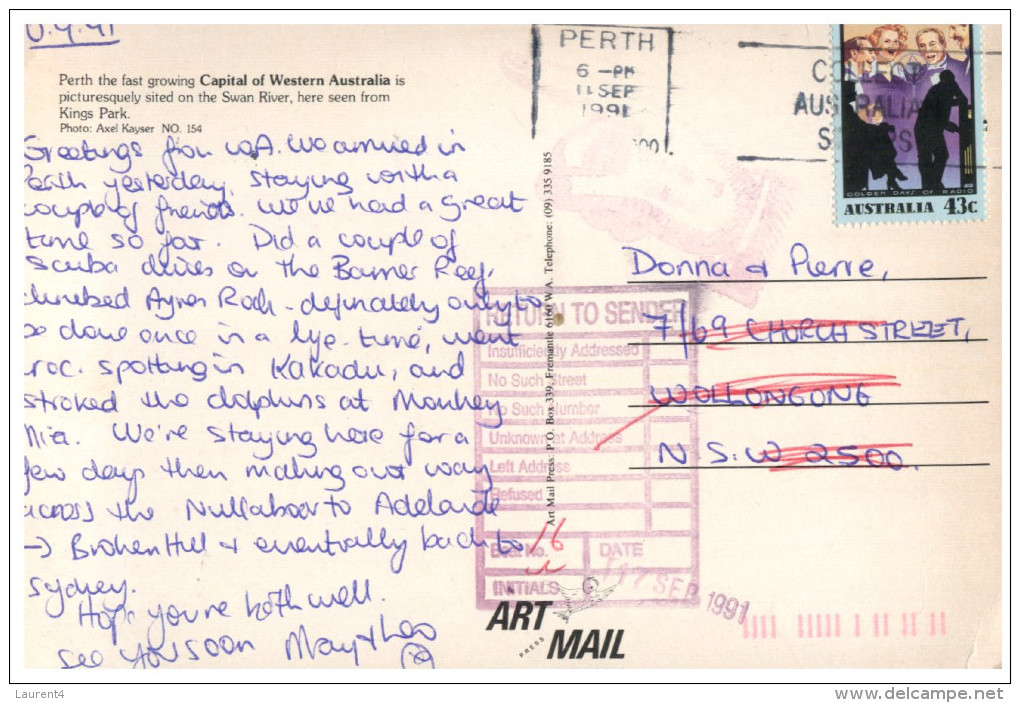 Perth the fast growing Capital of Western Australia is
picturesquely sited on the Swan River, here seen from
Kings Park.
Photo: Axel Kayser NO. 154
Greetings from W.A. We arrived in
Perth yesterday, staying with a
couple of friends. We've had a great
time so far. Did a couple of
scuba dives on the Barrier Reef,
climbed Ayres Rock - definately only to
be done once in a life-time, went
croc. spotting in Kakadu, and
stroked the dolphins at Monkey
Mia. We're staying here for a
few days then making our way
across the Nullaboor to Adelaide
-> Broken Hill & eventually back to
Sydney.
Hope you're both well.
See you soon May & Leo
Art Mail Press: P.O. Box 339, Fremantle 6160 W.A. Telephone: (09) 335 9185
PERTH
6 -PM
11 SEP
1991
COLLECT
AUSTRALIAN
GOLDEN DAYS OF RADIO
AUSTRALIA 43c
Donna & Pierre,
7/69 CHURCH STREET,
WOLLONGONG
N.S.W 2500.
RETURN TO SENDER
Insufficiently Addressed
No Such Street
No Such Number
Unknown at Address
Left Address
Refused
Beat No. 16
DATE
17 SEP 1991
INITIALS
ART
PRESS
MAIL
Laurent4
delcampe.net